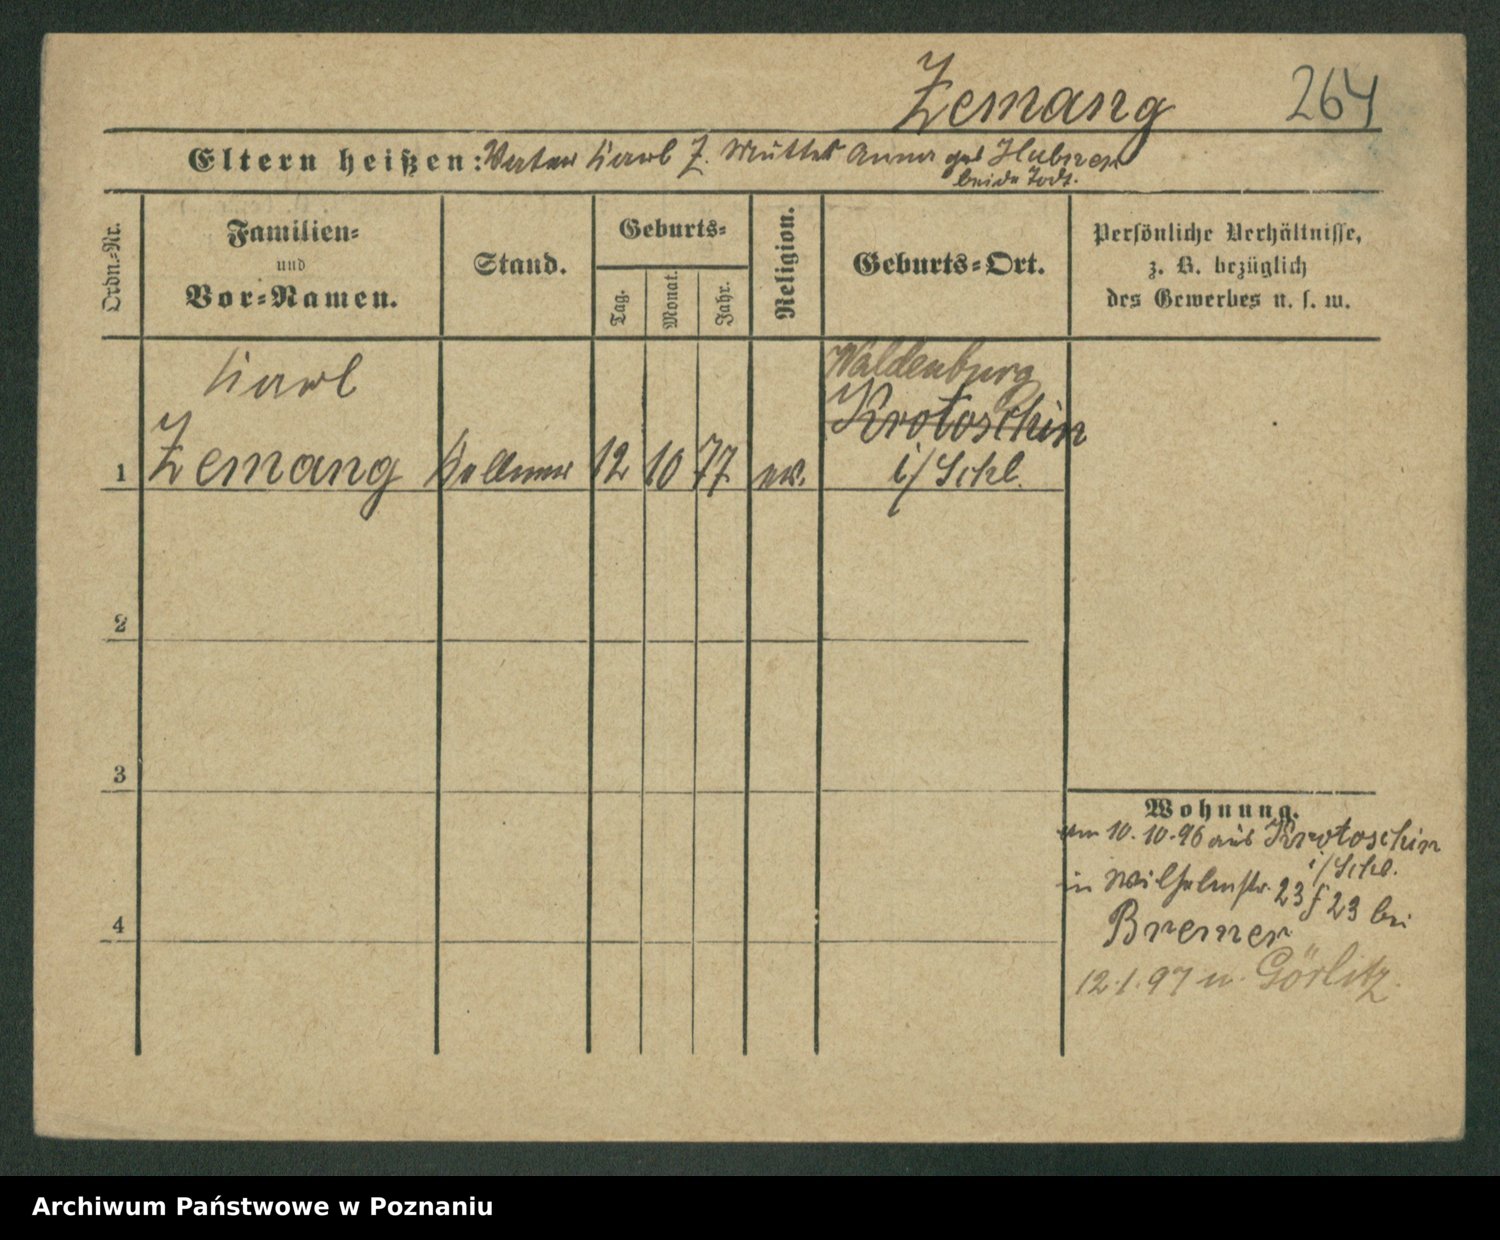 Zemang 264
Eltern heißen: Vater Karl Z. Mutter Anna geb Hubner
beide Todt.
Ordn.-Nr.
Familien-
und
Vor-Namen.
Stand.
Geburts-
Tag.
Monat.
Jahr.
Religion.
Geburts-Ort.
Persönliche Verhältnisse,
z. B. bezüglich
des Gewerbes u. s. w.
Karl
Waldenburg
Krotoschin
1 Zemang Kellner 12 10 77 ev. i/Schl.
2
3
4
Wohnung.
am 10.10.96 aus Krotoschin
i/Schl.
in Wilhelmstr. 23 f 23 bei
Bremer
12.1.97 n. Görlitz.
Archiwum Państwowe w Poznaniu